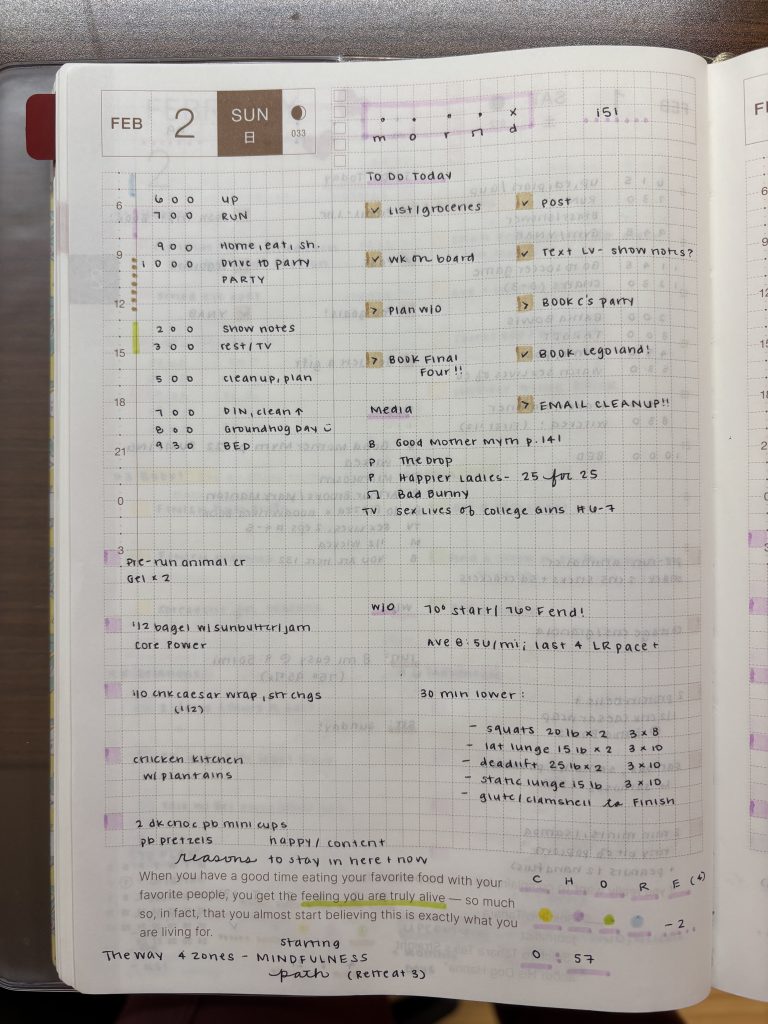 FEB 2 SUN
日
033
x
m o r n d
151
To Do Today
6 0 0 UP
7 0 0 RUN
9 0 0 Home, eat, sh.
1 0 0 0 Drive to party
PARTY
2 0 0 Show notes
3 0 0 rest/TV
5 0 0 cleanup, plan
7 0 0 DIN, clean ↑
8 0 0 Groundhog Day
9 3 0 BED
6
9
12
15
18
21
0
3
list/groceries
wk on board
plan w/o
BOOK Final
Four!!
post
Text LV- show notes?
BOOK C's party
BOOK Legoland!
EMAIL CLEANUP!!
Media
B Good Mother Myth p. 141
P The Drop
P Happier Ladies- 25 for 25
Bad Bunny
TV Sex Lives of College Girls #6-7
Pre-run animal cr
Gel x 2
1/2 bagel w/sunbutter/jam
Core Power
chk caesar wrap, str chgs
(1/2)
chicken kitchen
w/plantains
2 dk choc pb mini cups
pb pretzels
W/O 70° start/ 76° F end!
Ave 8:50/mi; last 4 LR pace +
30 min lower:
- squats 20 lb x 2 3 x 8
- lat lunge 15 lb x 2 3 x 10
- deadlift 25 lb x 2 3 x 10
- static lunge 15 lb 3 x 10
- glute/clamshell to Finish
happy/content
reasons to stay in here + now
When you have a good time eating your favorite food with your
favorite people, you get the feeling you are truly alive — so much
so, in fact, that you almost start believing this is exactly what you
are living for.
C H O R E
-2
0 : 57
starring
The way 4 zones - MINDFULNESS
path (Retreat 3)